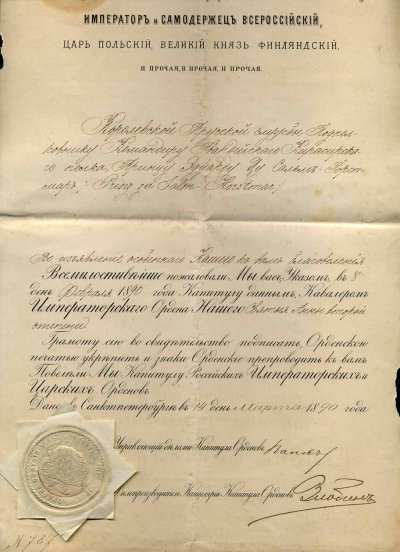 ИМПЕРАТОРЪ и САМОДЕРЖЕЦЪ ВСЕРОССІЙСКІЙ,
ЦАРЬ ПОЛЬСКІЙ, ВЕЛИКІЙ КНЯЗЬ ФИНЛЯНДСКІЙ,
И ПРОЧАЯ, И ПРОЧАЯ, И ПРОЧАЯ.
Королевской Прусской службы Подпол-
ковнику Командиру Гвардейскаго Кирасирска-
го полка, Принцу Эдуарду цу Сальмъ-Горст-
маръ, / Prinz zu Salm-Horstmar /
Во изъявленіе особеннаго Нашего къ вамъ благоволенія
Всемилостивѣйше пожаловали Мы васъ, Указомъ, въ 8
день Февраля 1890 года Капитулу даннымъ, Кавалеромъ
Императорскаго Ордена Нашего Святыя Анны второй
степени.
Грамоту сію во свидѣтельство подписать, Орденскою
печатью укрѣпить и знаки Орденскіе препроводить къ вамъ
Повелѣли Мы Капитулу Россійскихъ Императорскихъ и
Царскихъ Орденовъ.
Дано въ Санктпетербургѣ въ 14 день Марта 1890 года
Управляющій дѣлами Капитула Орденовъ
Дѣлопроизводитель Канцеляріи Капитула Орденовъ
№ 767